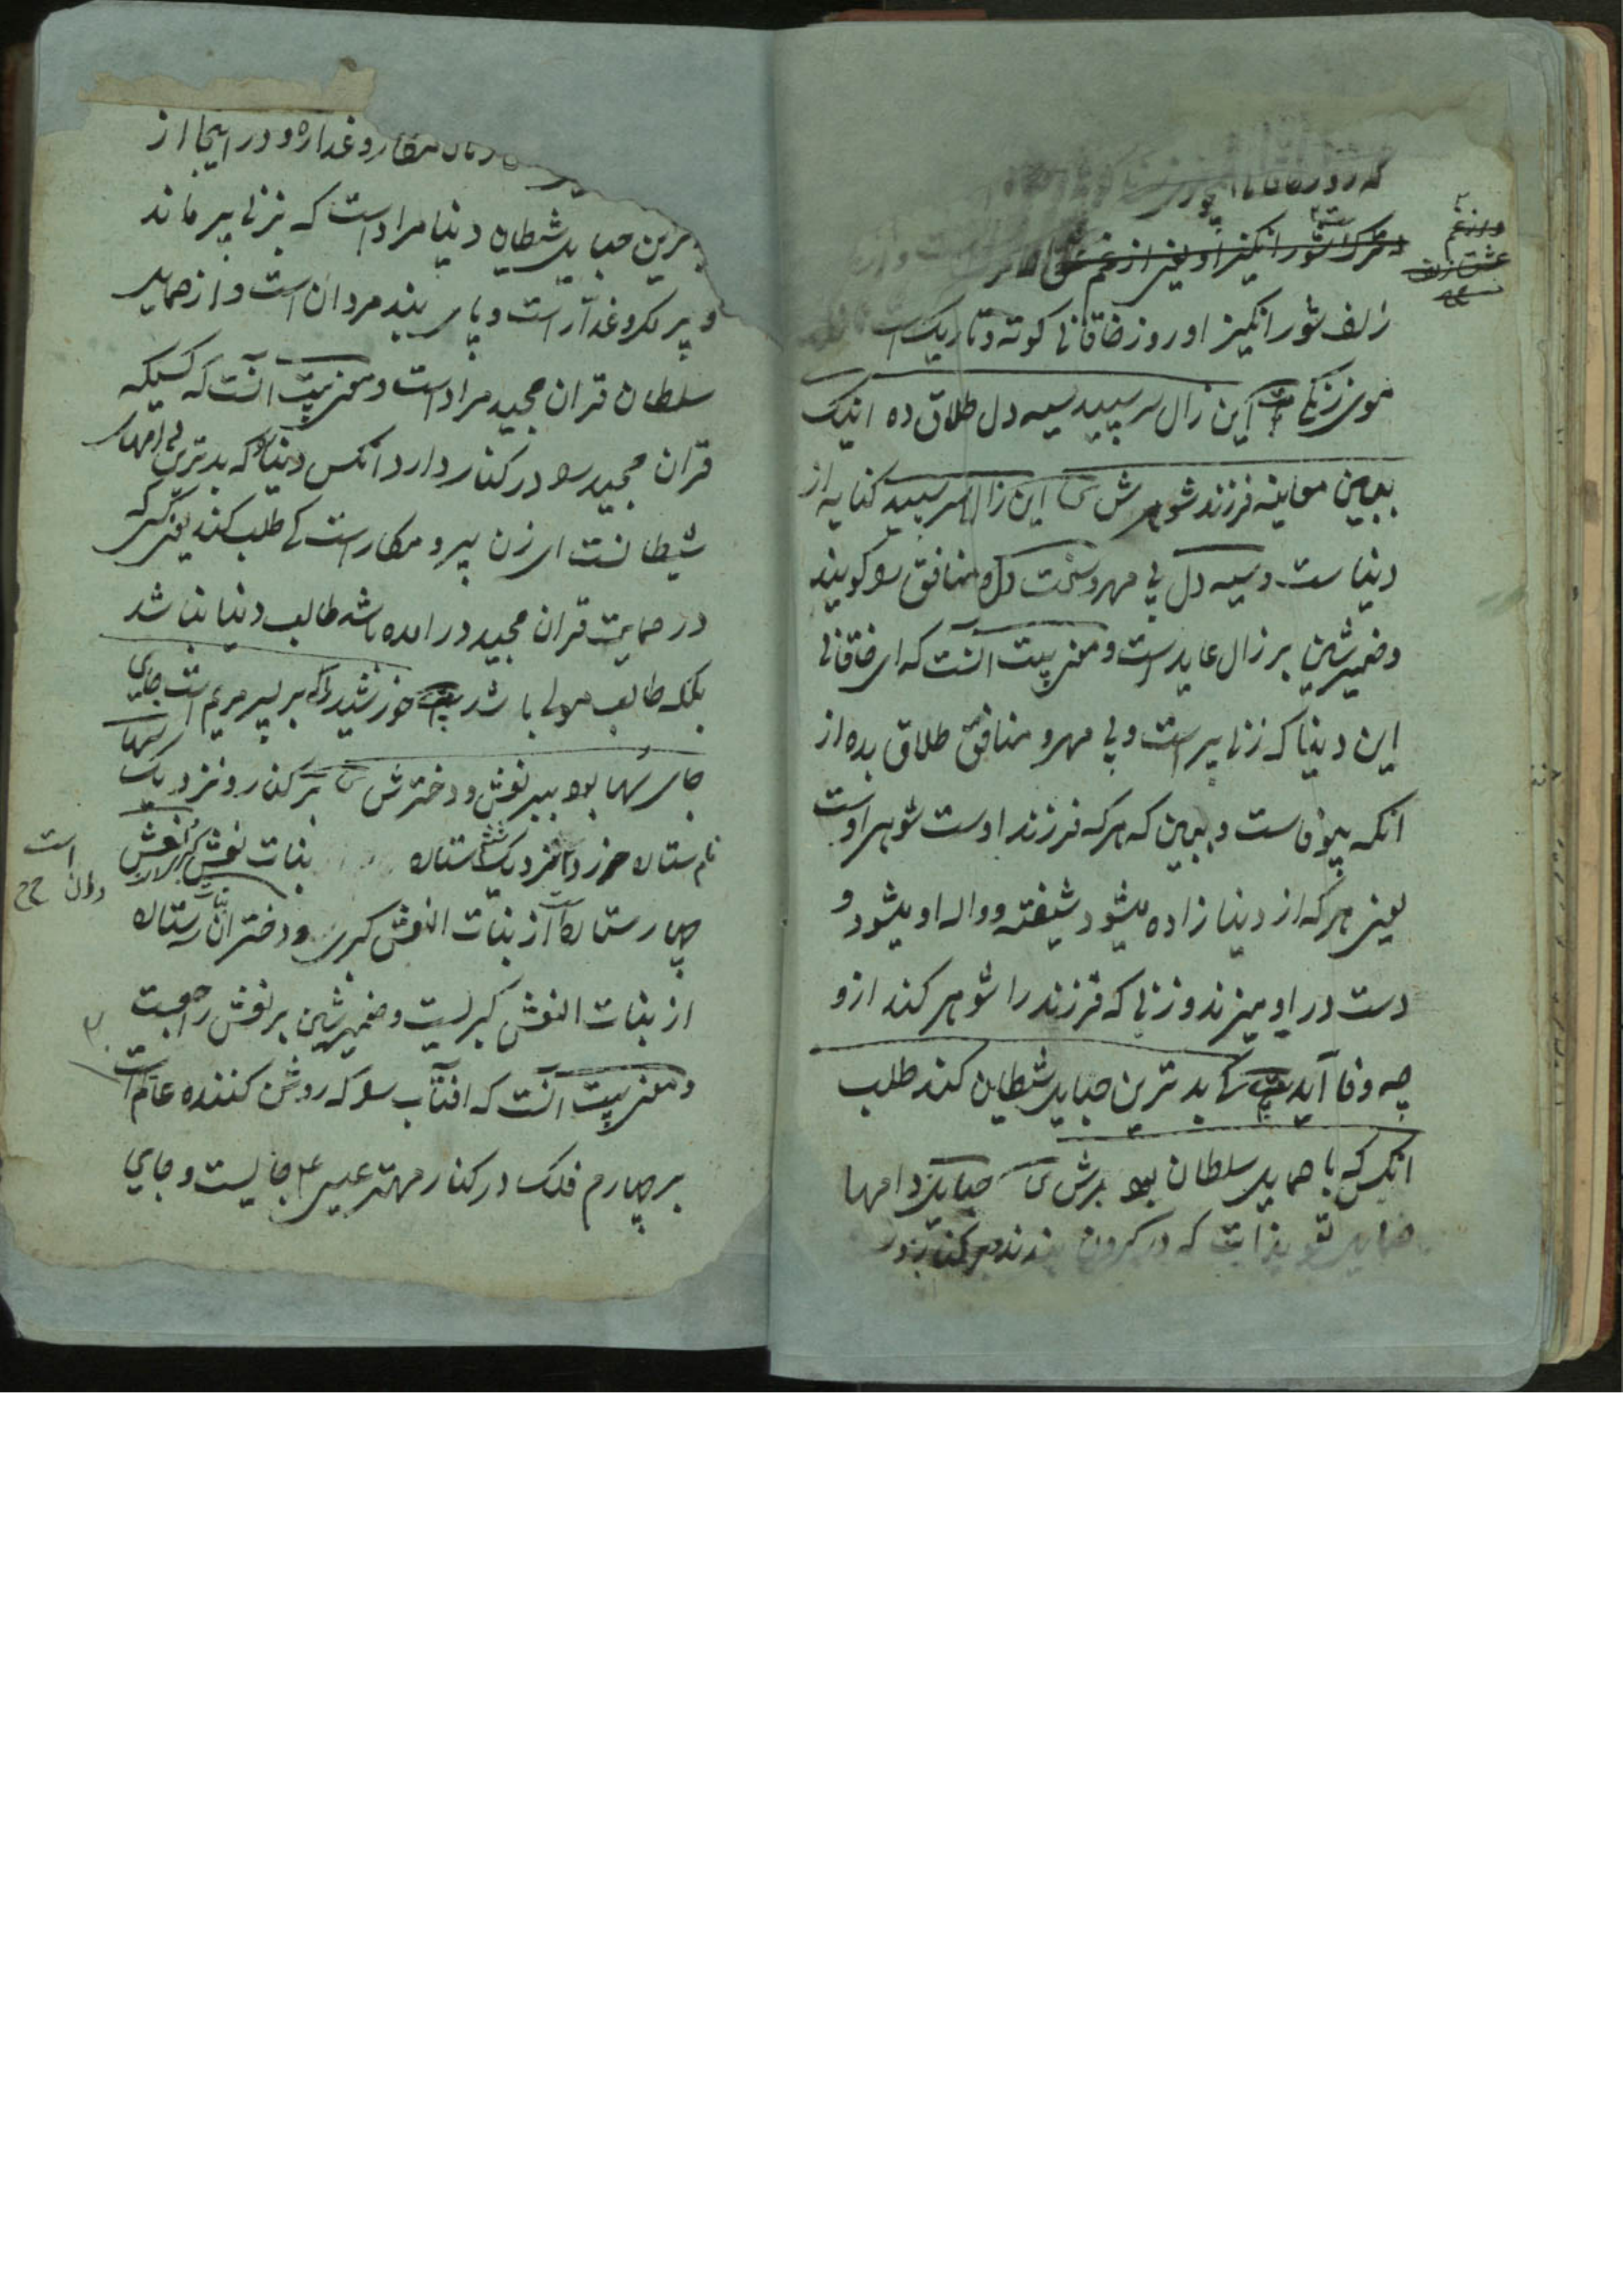 که روز خاقانی چون
زلف شور انگیز او روز خاقانی کوته و تاریک است
موی زنگی این زال سر سپید سیه دل طلاق ده اینک
ببین معاینه فرزند شوهرش ش این زال سر سپید کنایه از
دنیا ست و سیه دل بی مهر و سخت دل و منافق را گویند
و ضمیر شین بر زال عاید است و معنی بیت آنست که ای خاقانی
این دنیا که زنی پیر است و بی مهر و منافق طلاق بده از
انکه بیوفاست و ببین که هر که فرزند اوست شوهر اوست
یعنی هر که از دنیا زاده میشود شیفته و واله او میشود و
دست در او میزند و زنی که فرزند را شوهر کند ازو
چه وفا آید کی بدترین حباید شیطاین کند طلب
انکس که با حماید سلطان بود برش ش حباید دامها
حماید تعویذ است که در گردن بندند در کنار
مکار و غداره و در اینجا از
بدترین حباید شیطاین دنیا مراد است که بزنی پیر ماند
و پر مکر و غدار است و پای بند مردان است و از حماید
سلطان قران مجید مراد است و معنی بیت آنست که کسیکه
قران مجید را در کنار دارد انکس دنیا را که بدترین دامهای
شیطانست ای زن پیر و مکار است کی طلب کند یعنی کسی که
در حمایت قران مجید در امده باشد طالب دنیا نباشد
بلکه طالب مولی باشد خورشید را که بر پسر مریم است جای
جای سها بود ببر نعش و دخترش ش بر کنار و نزدیک سها
نام ستاره خرد نزدیک ستاره بنات نعش کبری نعش
چهار ستاره است از بنات النعش کبری و دختران سه ستاره
از بنات النعش کبریست و ضمیر شین بر نعش راجعست
و معنی بیت آنست که افتاب را که روشن کننده عالم است
بر چهارم فلک در کنار مهتر عیسی ع جایست و جای